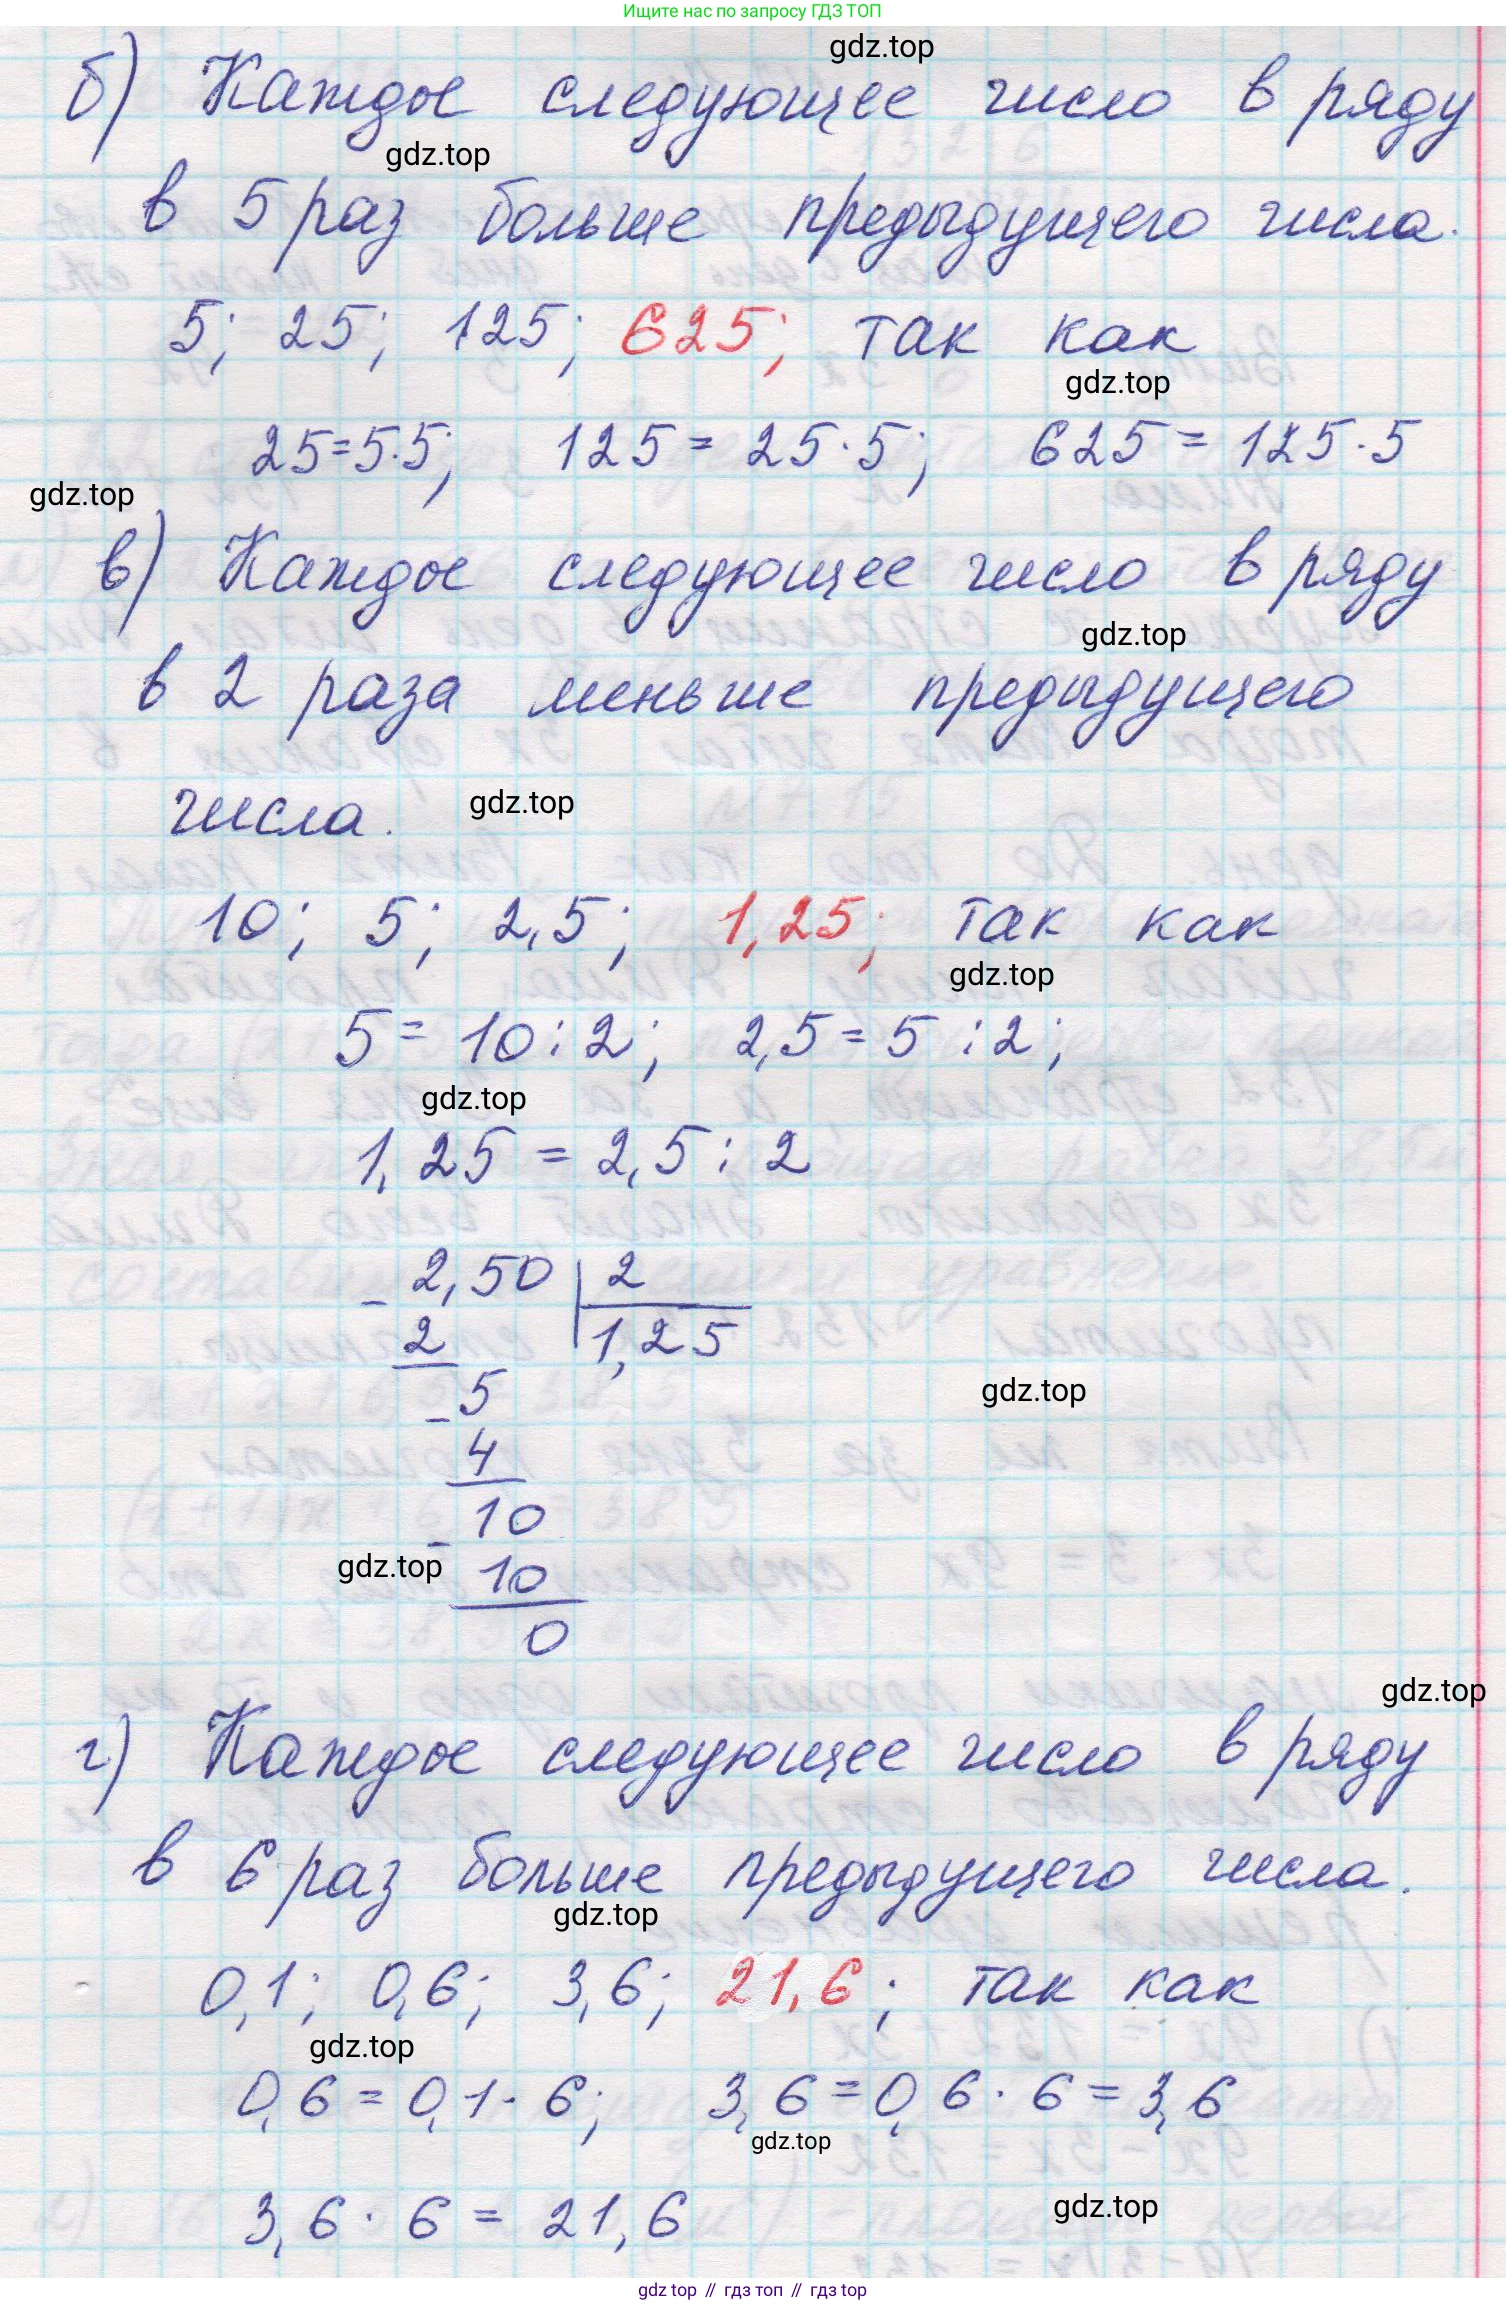 Ищите нас по запросу ГДЗ ТОП
gdz.top
б) Каждое следующее число в ряду
gdz.top
в 5 раз больше предыдущего числа.
5; 25; 125; 625; так как
gdz.top
25=5·5; 125 = 25·5; 625 = 125·5
gdz.top
в) Каждое следующее число в ряду
gdz.top
в 2 раза меньше предыдущего
числа.
gdz.top
10; 5; 2,5; 1,25; так как
gdz.top
5 = 10 : 2; 2,5 = 5 : 2;
gdz.top
1,25 = 2,5 : 2
- 2,50 | 2
2 1,25
- 5
gdz.top
4
- 10
gdz.top
10
0
gdz.top
г) Каждое следующее число в ряду
в 6 раз больше предыдущего числа.
gdz.top
0,1; 0,6; 3,6; 21,6; так как
gdz.top
0,6 = 0,1 · 6; 3,6 = 0,6 · 6 = 3,6
gdz.top
3,6 · 6 = 21,6
gdz.top
gdz top // гдз топ // гдз top